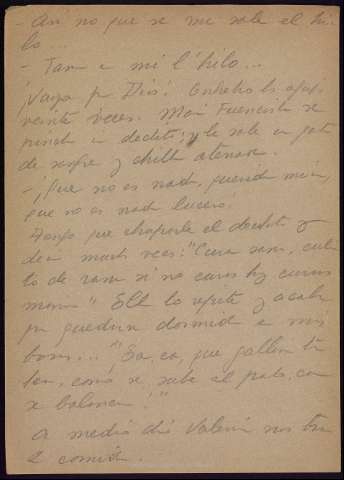 - Así no que se me sale el hi-
lo...
- Tam a mí l'hilo...
¡Vaya por Dios! Enhebro la aguja
veinte veces. Mari Fuencisla se
pincha un dedito; y le sale un gota
de sangre y chilla
- ¡Que no es nada, querida mía,
que no es nada lucero.
Tengo que chuparle el dedito y
decir muchas veces: "Cura sana, culi-
to de rana si no curas hoy curas
mañana" Ella lo repite y acaba
por quedarse dormida en mis
brazos... "Ea, ea, que
como se sube al palo, como
se balancea!"
A medio día Valeria nos trae
la comida.